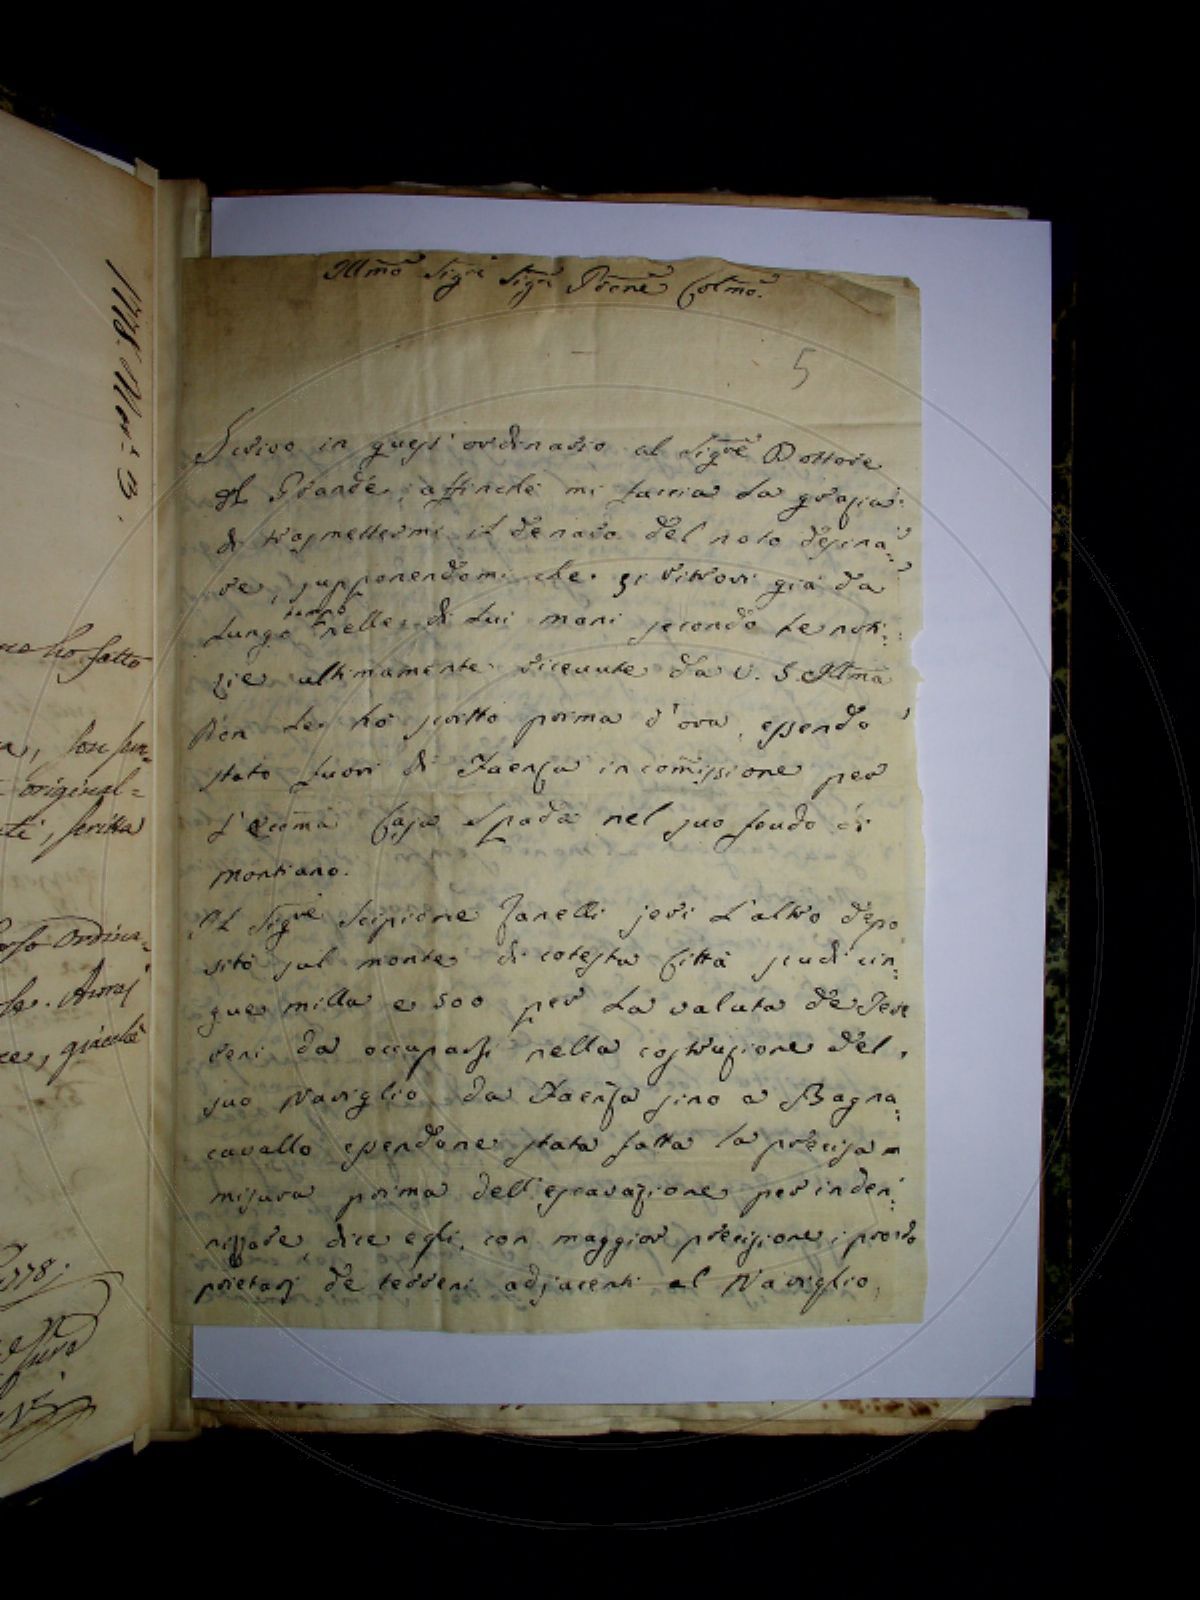 1778. Mar. 3.
Illmo Sigre Sigre Prone Colmo.
5
Scrivo in quest' ordinario al Sigre Dottore
del Grande, affinche mi faccia la grazia
di trasmettermi il denaro del noto desina=
re, supponendomi che si ritrovi già da
lungo tempo nelle di lui mani secondo le noti=
zie ultimamente ricevute da V. S. Illma
Non le ho scritto prima d'ora, essendo
stato fuori di Faenza in commissione per
l'Eccma Casa Spada nel suo feudo di
Montiano.
Il Sigre Scipione Zanelli jeri l'altro depo
sitò sul monte di cotesta Città scudi cin=
que milla e 500 per la valuta de Terr
reni da occuparsi nella costruzione del
suo Naviglio da Faenza sino a Bagna=
cavallo essendone stata fatta la precisa
misura prima dell'escavazione per inden=
nizzare, dice egli, con maggior precisione i pro
prietarj de terreni adjacenti al Naviglio,
ho fatto
original=
scritta
Ordina=
giacchè
1778.